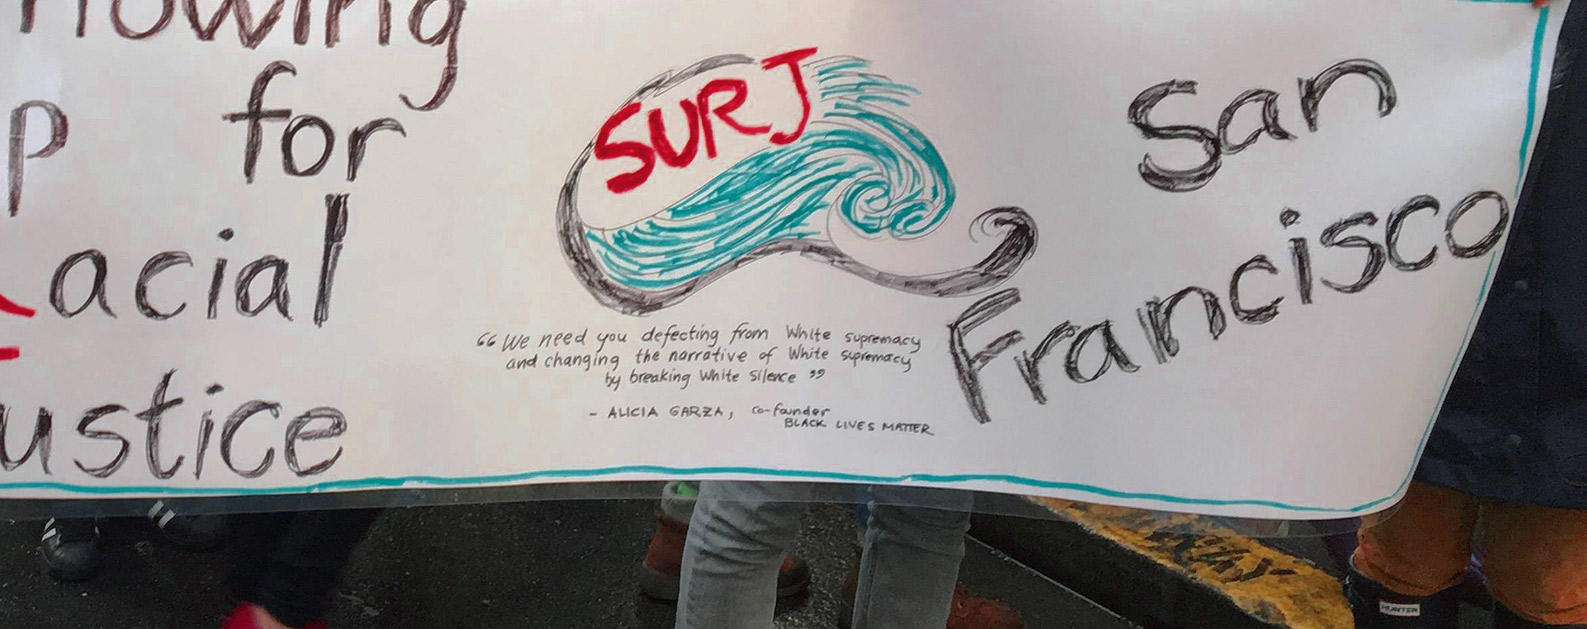 howing
p for
Racial
ustice
SURJ
San
Francisco
“We need you defecting from White supremacy
and changing the narrative of White supremacy
by breaking White Silence”
- ALICIA GARZA, co-founder
BLACK LIVES MATTER
HUNTER